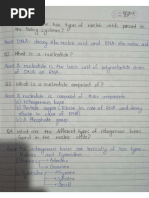 two types of nucleic acids present in
the living systems?
Ans: DNA: deoxy ribo nucleic acid and RNA: ribo nucleic acid
Q2 What is a nucleotide?
Ans: A nucleotide is the basic unit of polynucleotide chain
of DNA or RNA.
Q3 What is a nucleotide composed of?
A nucleotide is composed of three components
Nitrogenous base
Pentose sugar (Ribose in case of RNA and deoxy
ribose in case of DNA)
A Phosphate group
Q4 What are the different types of nitrogenous bases
found in the nucleic acids?
Nitrogenous bases are basically of two types:
Purines and Pyrimidines
Adenine
Guanine
Thymine
Uracil
Cytosine